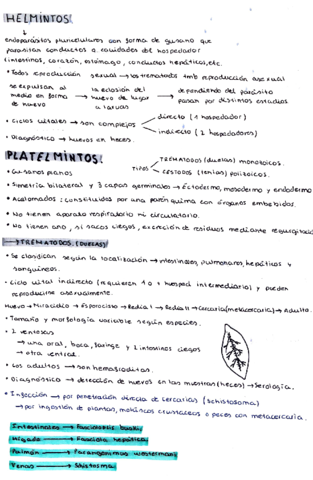 HELMINTOS:
endoparásitos pluricelulares con forma de gusano que
parasitan conductos o cavidades del hospedador
(intestinos, corazón, estómago, conductos hepáticos, etc.
• Todos reproducción sexual → los trematodos tmb reproducción asexual
se expulsan al medio en forma de huevo → la eclosión del huevo da lugar a larvas → dependiendo del parásito pasan por distintos estadios
• Ciclos vitales → son complejos
directo (1 hospedador)
indirecto (2 hospedadores)
• Diagnóstico → huevos en heces.
PLATELMINTOS:
• Gusanos planos
TIPOS
TREMATODOS (duelas) monoicos.
CESTODOS (tenias)
• Simetría bilateral y 3 capas germinales → Ectodermo, mesodermo y endodermo
• Acelomados: constituidos por una parénquima con órganos embebidos.
• No tienen aparato respiratorio ni circulatorio.
• No tienen ano, si sacos ciegos, excreción de residuos mediante
→ TREMATODOS: (DUELAS)
• Se clasifican según la localización → intestinales, pulmonares, hepáticos y
sanguíneos.
• Ciclo vital indirecto (requieren 1 o + hosped intermediario) y pueden
reproducirse asexualmente
Huevo → Miracidio → Esporocisto → Redia I → Redia II → Cercaria (metacercaria) → Adulto.
• Tamaño y morfología variable según especies.
• 2 ventosas
→ una oral, boca, faringe y 2 intestinos ciegos
→ otra ventral.
• Los adultos → son hemafroditas.
• Diagnóstico → detección de huevos en las muestras (heces) → Serología.
• Infección → por penetración directa de cercarias (schistosoma)
→ por ingestión de plantas, moluscos crustaceos o peces con metacercaria.
Intestinales → Fasciolopsis buski
Hígado → Fasciola hepática
Pulmón → Paragonimus westermani
Venas → Schistosoma